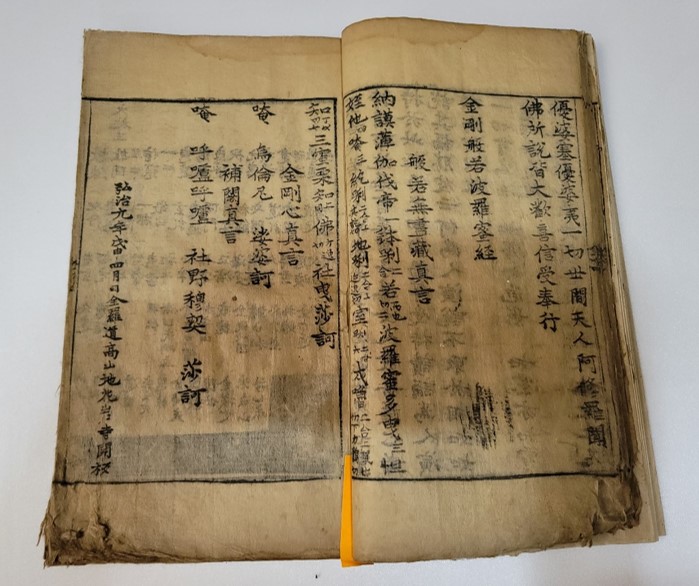 優婆塞優婆夷一切世間天人阿修羅聞
佛所說皆大歡喜信受奉行
金剛般若波羅蜜經
般若無盡藏真言
納謨薄伽伐帝一鉢剌二若三波羅蜜多曳三怛
姪他四唵五紇剝地剝室戍嚕
知三窣栗知佛社曳莎訶
金剛心真言
唵 烏倫尼 娑婆訶
補闕真言
唵 呼嚧呼嚧 社野穆契 莎訶
弘治九年 四月日全羅道高山地花岩寺開板